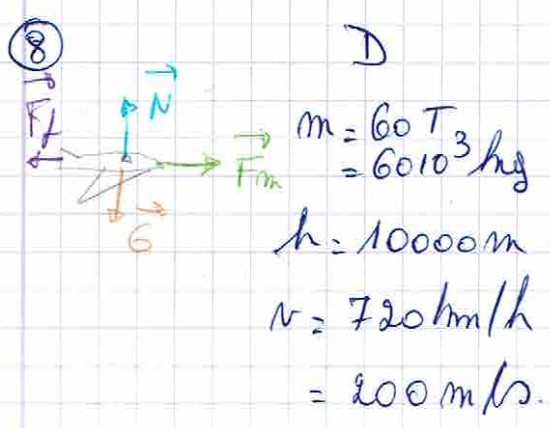 8
D
Ff
N
Fm
G
m = 60 T
= 60 10³ kg
h = 10000 m
v = 720 km/h
= 200 m/s.